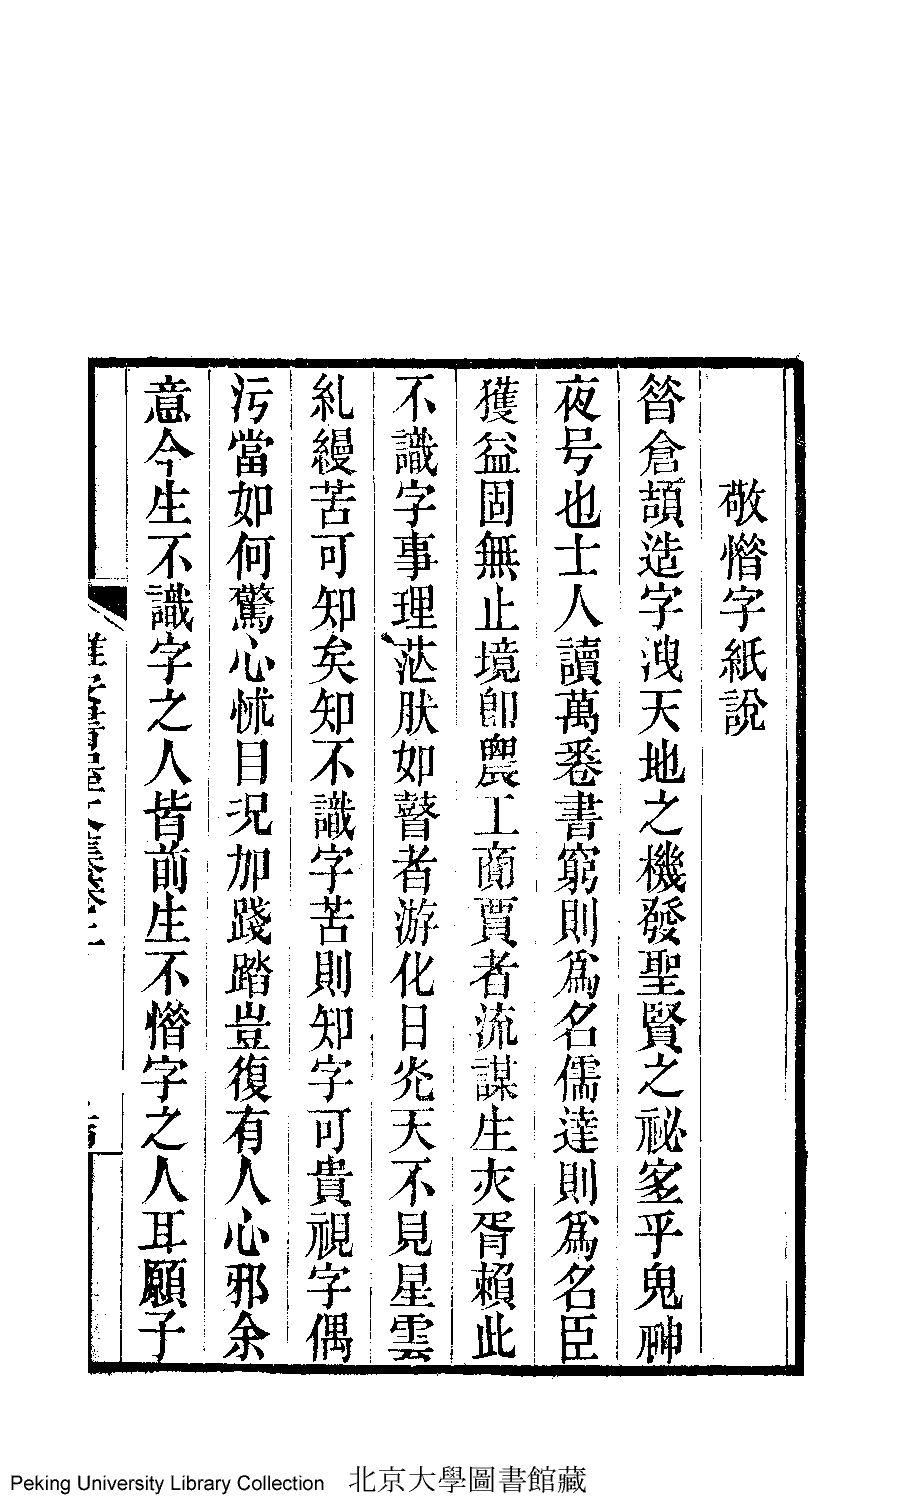 敬惜字紙說
昝倉頡造字洩天地之機發聖賢之祕宻乎鬼神
夜号也士人讀萬卷書窮則爲名儒達則爲名臣
獲益固無止境卽農工商賈者流謀生夾胥賴此
不識字事理茫肰如瞽者游化日灮天不見星雲
糺縵苦可知矣知不識字苦則知字可貴視字偶
污當如何驚心怵目況加踐踏豈復有人心邪余
意今生不識字之人皆前生不惜字之人耳願子
Peking University Library Collection 北京大學圖書館藏